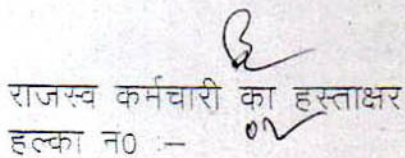 राजस्व कर्मचारी का हस्ताक्षर
हल्का न0 :- 02